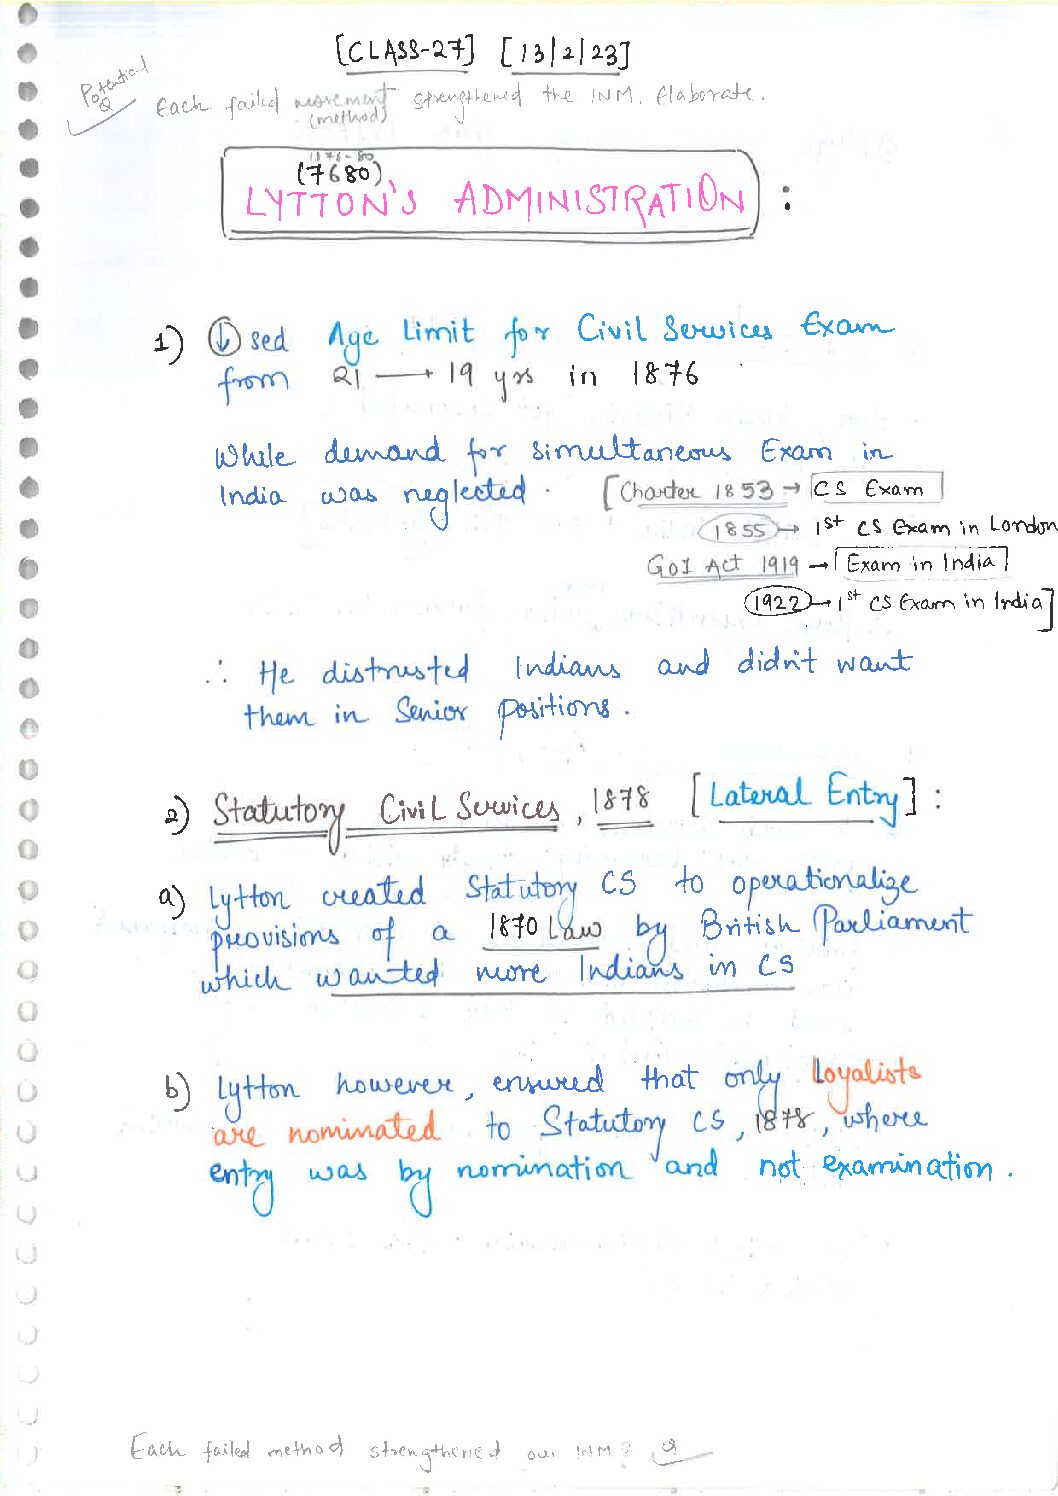 [CLASS-27] [13/2/23]
Potential
Q
Each failed movement strengthened the INM. Elaborate.
(method)
1876-80
(7680)
LYTTON'S ADMINISTRATION :
1) ↓sed Age Limit for Civil Services Exam
from 21 → 19 yrs in 1876
While demand for simultaneous Exam in
India was neglected. [Charter 1853 → CS Exam
1855 → 1st CS Exam in London
GoI Act 1919 → Exam in India
1922 → 1st CS Exam in India]
∴ He distrusted Indians and didn't want
them in Senior positions.
2) Statutory Civil Services, 1878 [Lateral Entry] :
a) Lytton created Statutory CS to operationalize
provisions of a 1870 Law by British Parliament
which wanted more Indians in CS
b) Lytton however, ensured that only Loyalists
are nominated to Statutory CS, 1878, where
entry was by nomination and not examination.
Each failed method strengthened our INM? Q